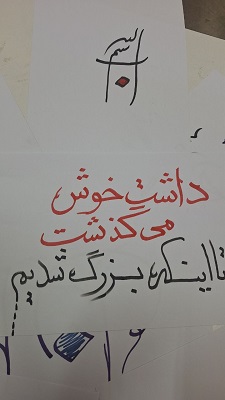 داشت خوش
می‌گذشت
تا اینکه، بزرگ شدیم